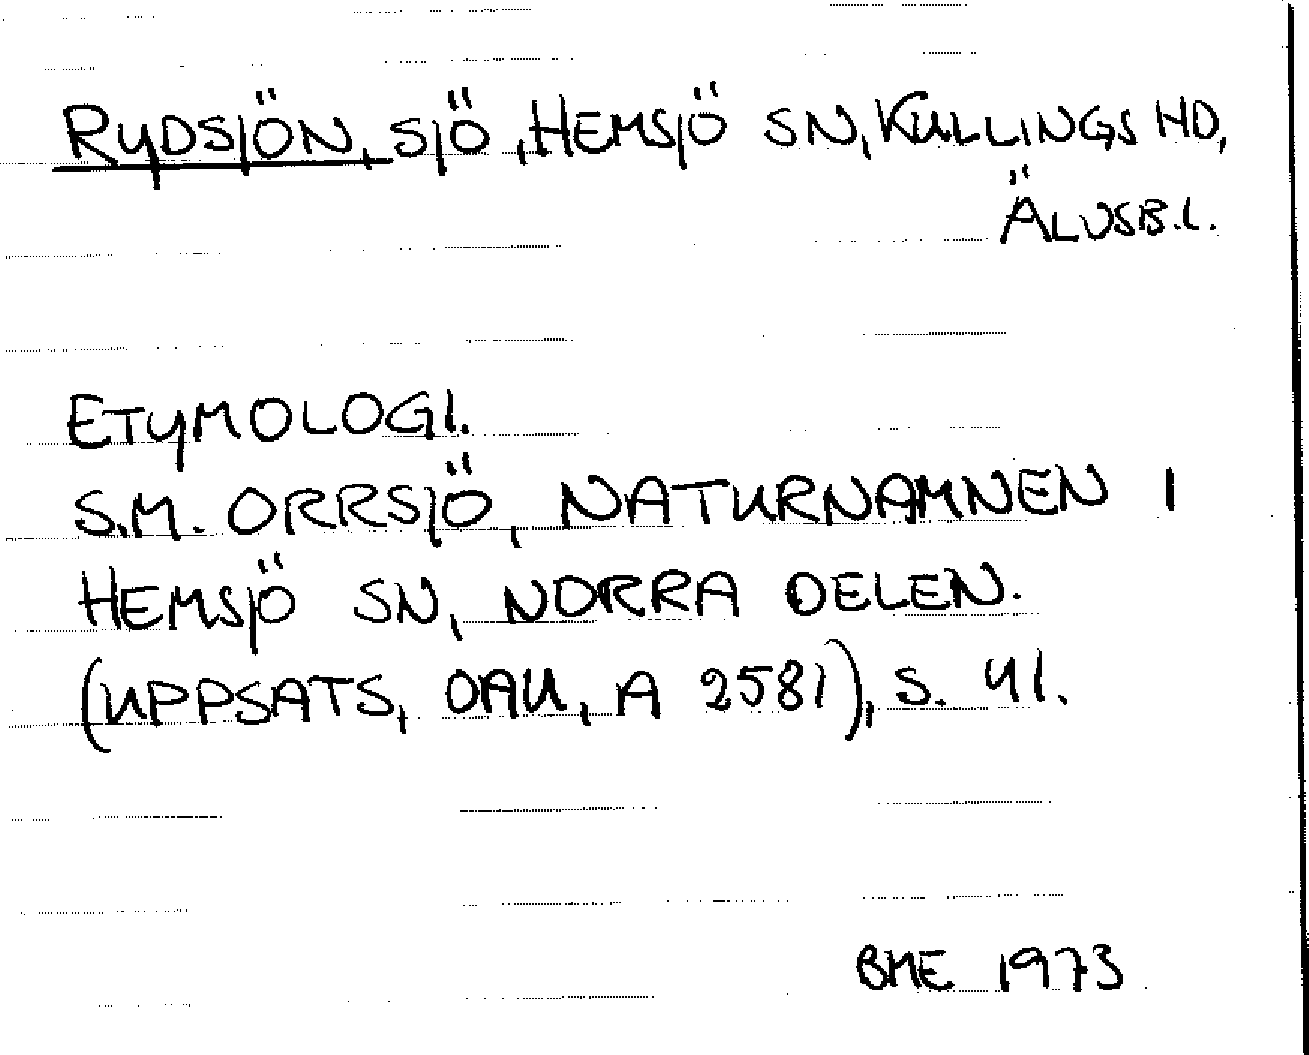 RYDSJÖN, SJÖ, HEMSJÖ SN, KULLINGS HD,
ÄLVSB.L.
ETYMOLOGI.
S.M. ORRSJÖ, NATURNAMNEN I
HEMSJÖ SN, NORRA DELEN.
(UPPSATS, OAU, A 2581), S. 41.
BME 1973